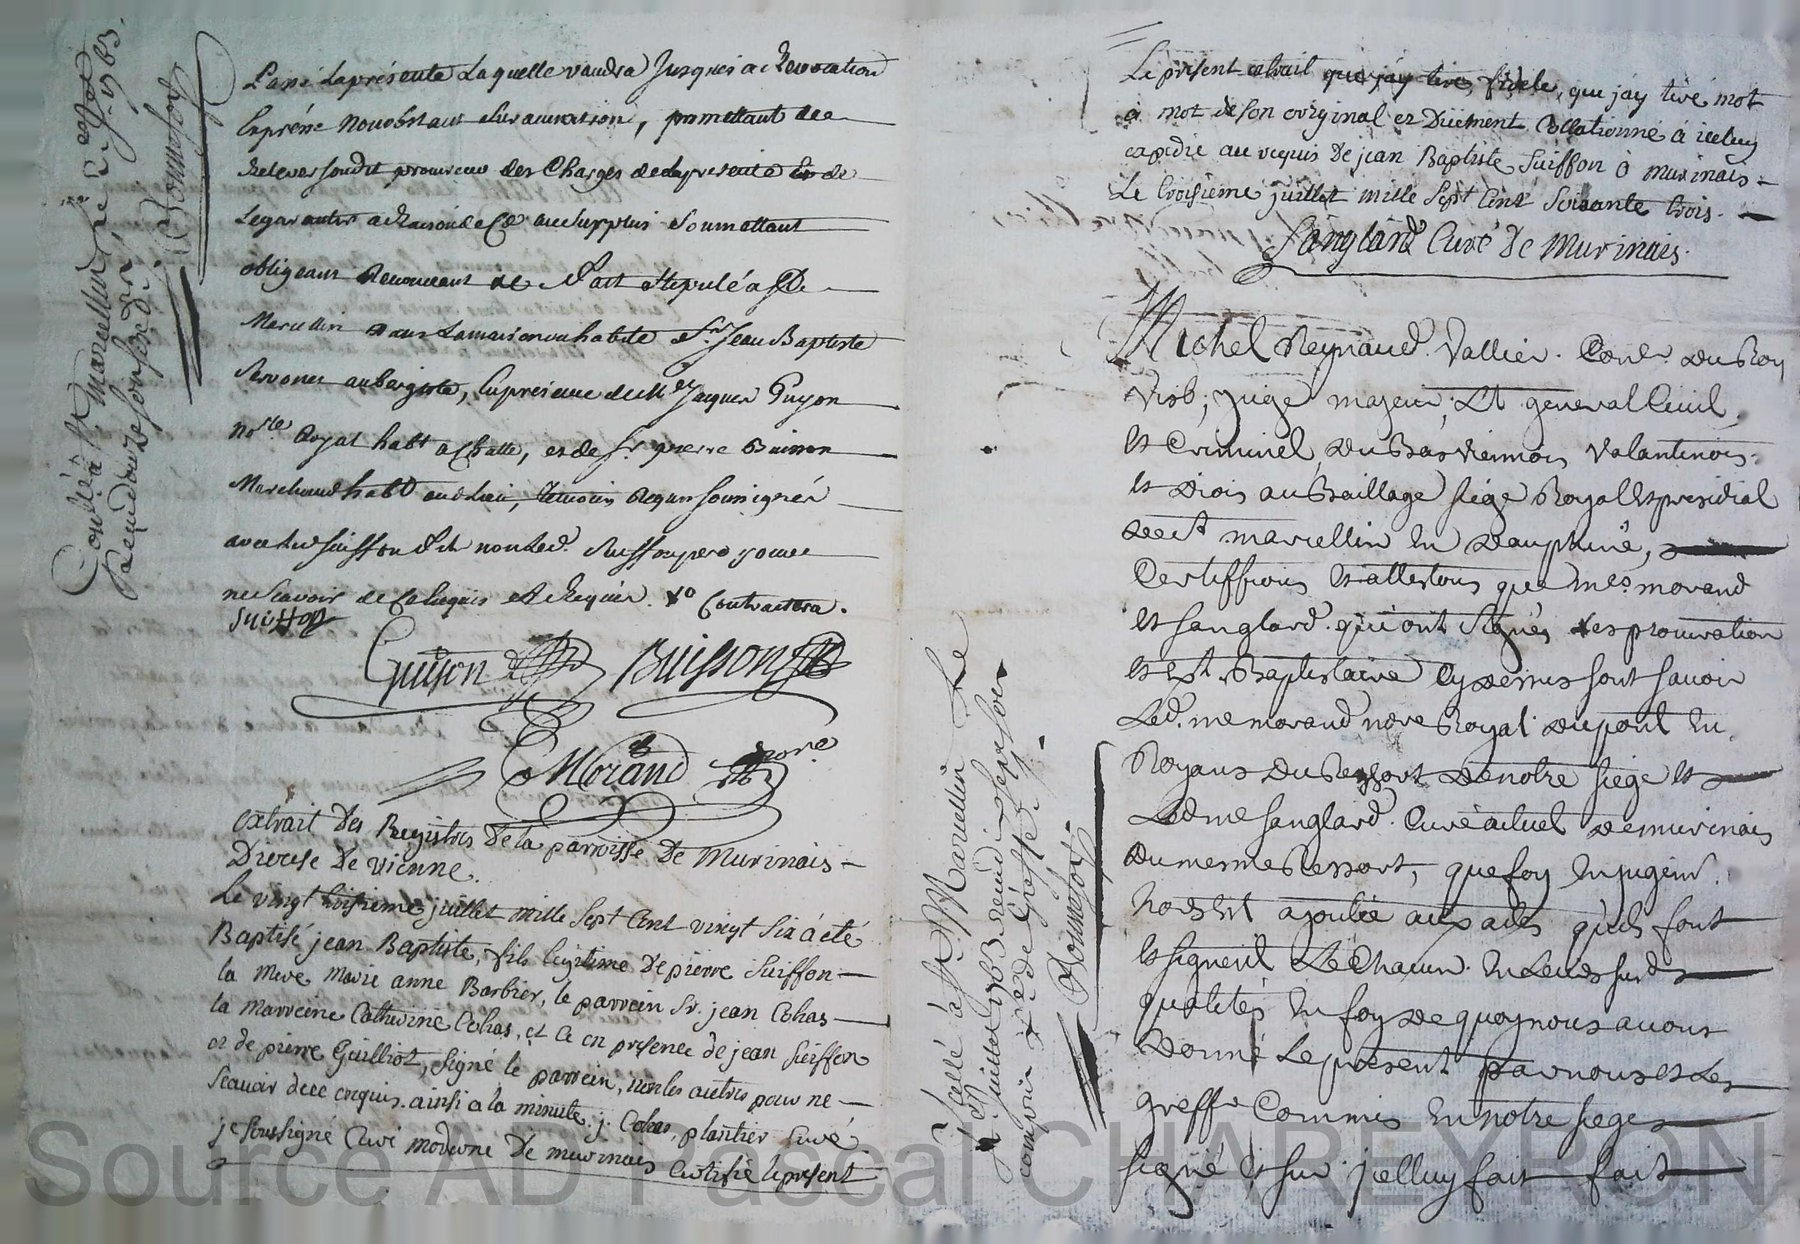 Par la présente Laquelle vaudra Jusques a Revocation
Exprésse Nonobstant Surannation, promettant de
Relever sondit procureur des Charges de la presente Et de
Le garantir a Raison de Ce au surplus Soumettant
obligeant Renonceant &c Fait et stipulé a St.
Marcellin dans La maison ou habite Sr. Jean Baptiste
Servonet aubergiste, En presence de Me Jaques Guyon
Nore Royal habt a Chatte, et de Sr. pierre Buisson
Marchand habt aud Lieu, temoins Requis soussignés
avec Led Suiffon & non Led.
ne Scavoir de Ce Enquis Et Requis. Contractera.
Suiffon
Guyson Buisson
Morand Nore
extrait des Registres de la parroisse de Murinais
Diocese de Vienne.
Le vingt troisieme juillet mille Sept Cent vingt Six á été
Baptisé jean Baptiste, fils legitime de pierre Suiffon
la Mere Marie anne Barbier, le parrein Sr. jean Cohas
la Marreine Catherine Cohas, et ce en presence de jean Suiffon
et de pierre Guilliot, Signé le parrein, non les autres pour ne
Scavoir de ce enquis. ainsi a la minute. j. Cohas, plantier Curé
je soussigné Curé moderne de murinais Certifie le present
Controllé à St. Marcellin,
1763.
Bonnefoy
Le present extrait que j'ay tiré fidele, que j'ay tiré mot
à mot de son original et Duement Collationné à iceluy
expedié au requis de jean Baptiste Suiffon à Murinais
Le troisieme juillet mille Sept Cent Soixante trois.
Sanglard Curé de Murinais.
Michel Reynaud Vallier. Coner. du Roy
Visb; juge majeur, Lt general Civil,
Et Criminel, du Bas Viennois Valantinois
Et Diois au Bailliage Siége Royal Et presidial
de St marcellin En Dauphiné,
Certiffions Et attestons que Mes. morand
Et Sanglard. qui ont Signés Les procuration
Et Ext. Baptistaire Cy dessus sont savoir
Led. me morand nore Royal du pont En
Royans du Ressort de notre Siege Et
Led me Sanglard. Curé actuel de murinais
Du mesme Ressort, que foy En jugemt.
Hors Est ajoutée aux actes qu'ils font
Et Signent Et Chacun. En Leurs surds
qualités En foy de quoy nous avons
Donné Le présent par nous et Le
greffr Commis En notre Siege
Signé Et sur jcelluy fait fait
Scellé à St. Marcellin Le
Juillet 1763 Reçu dix sept sols
compris Le de Greffe.
Bonnefoy
Source AD Pascal CHAREYRON